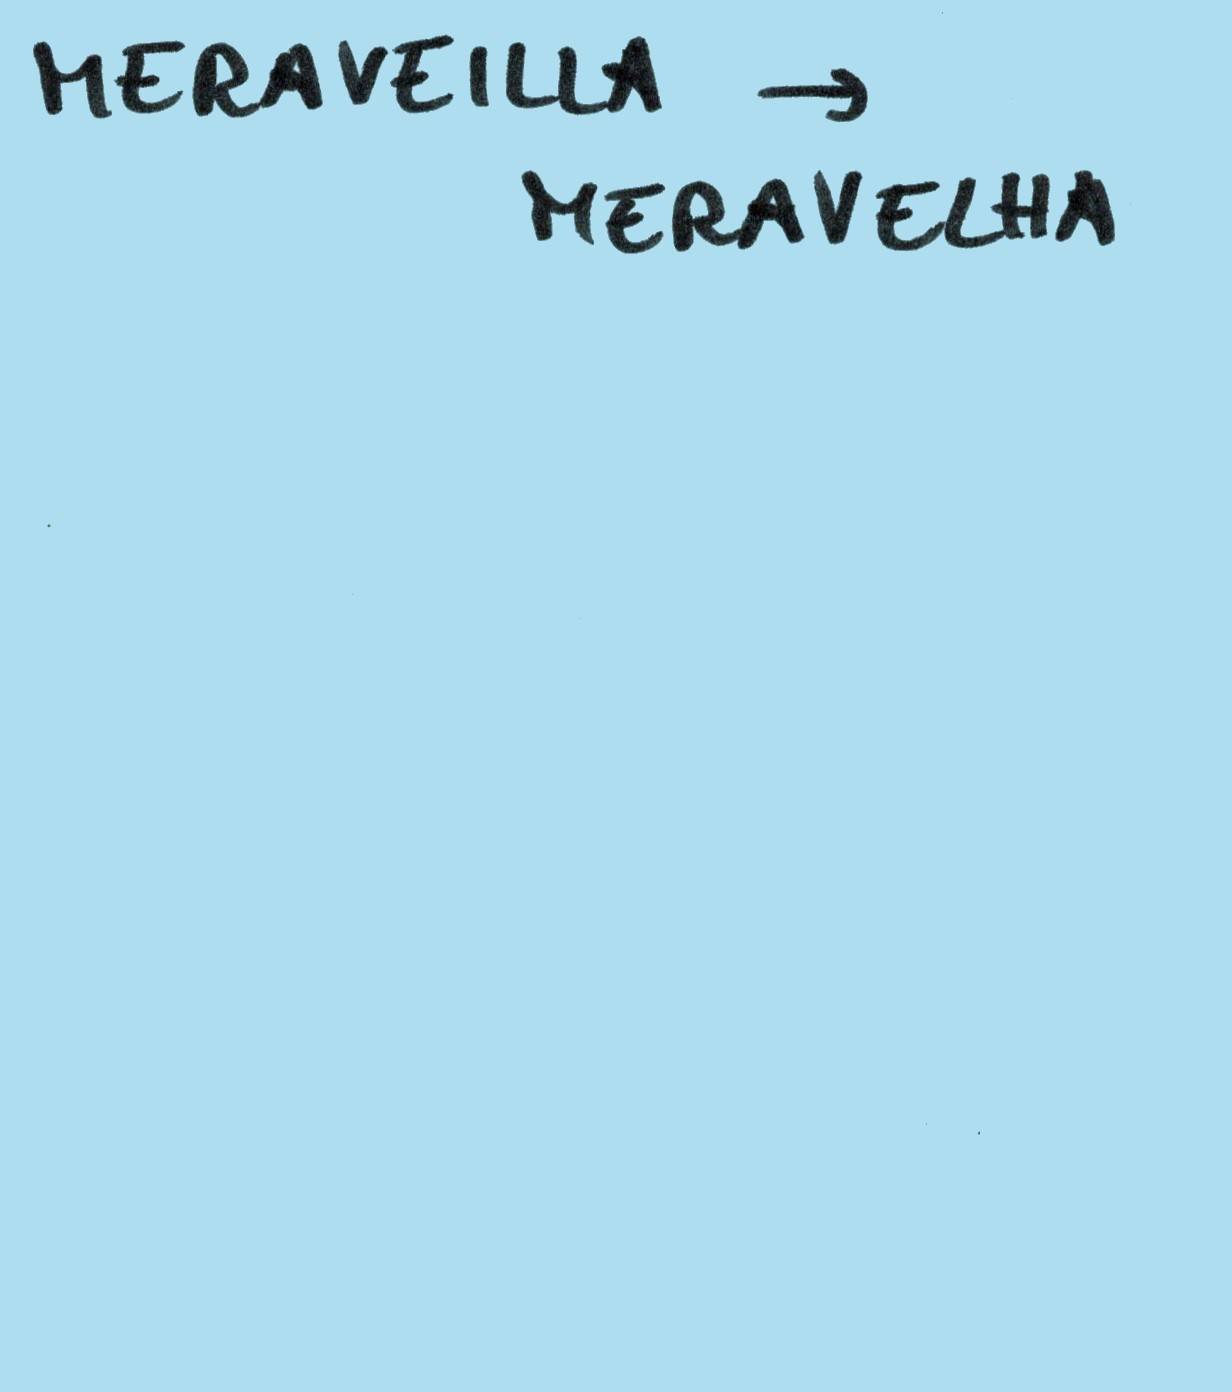 MERAVEILLA →
MERAVELHA